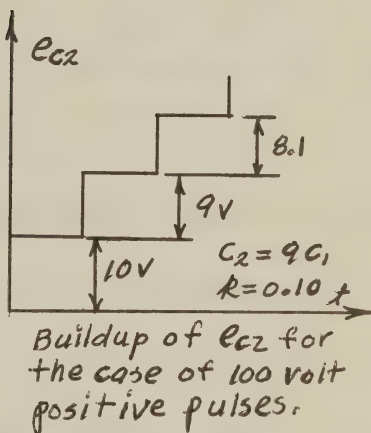 ec2
8.1
9v
C2 = 9C1
10v
k=0.10
t
Buildup of ec2 for
the case of 100 volt
positive pulses.